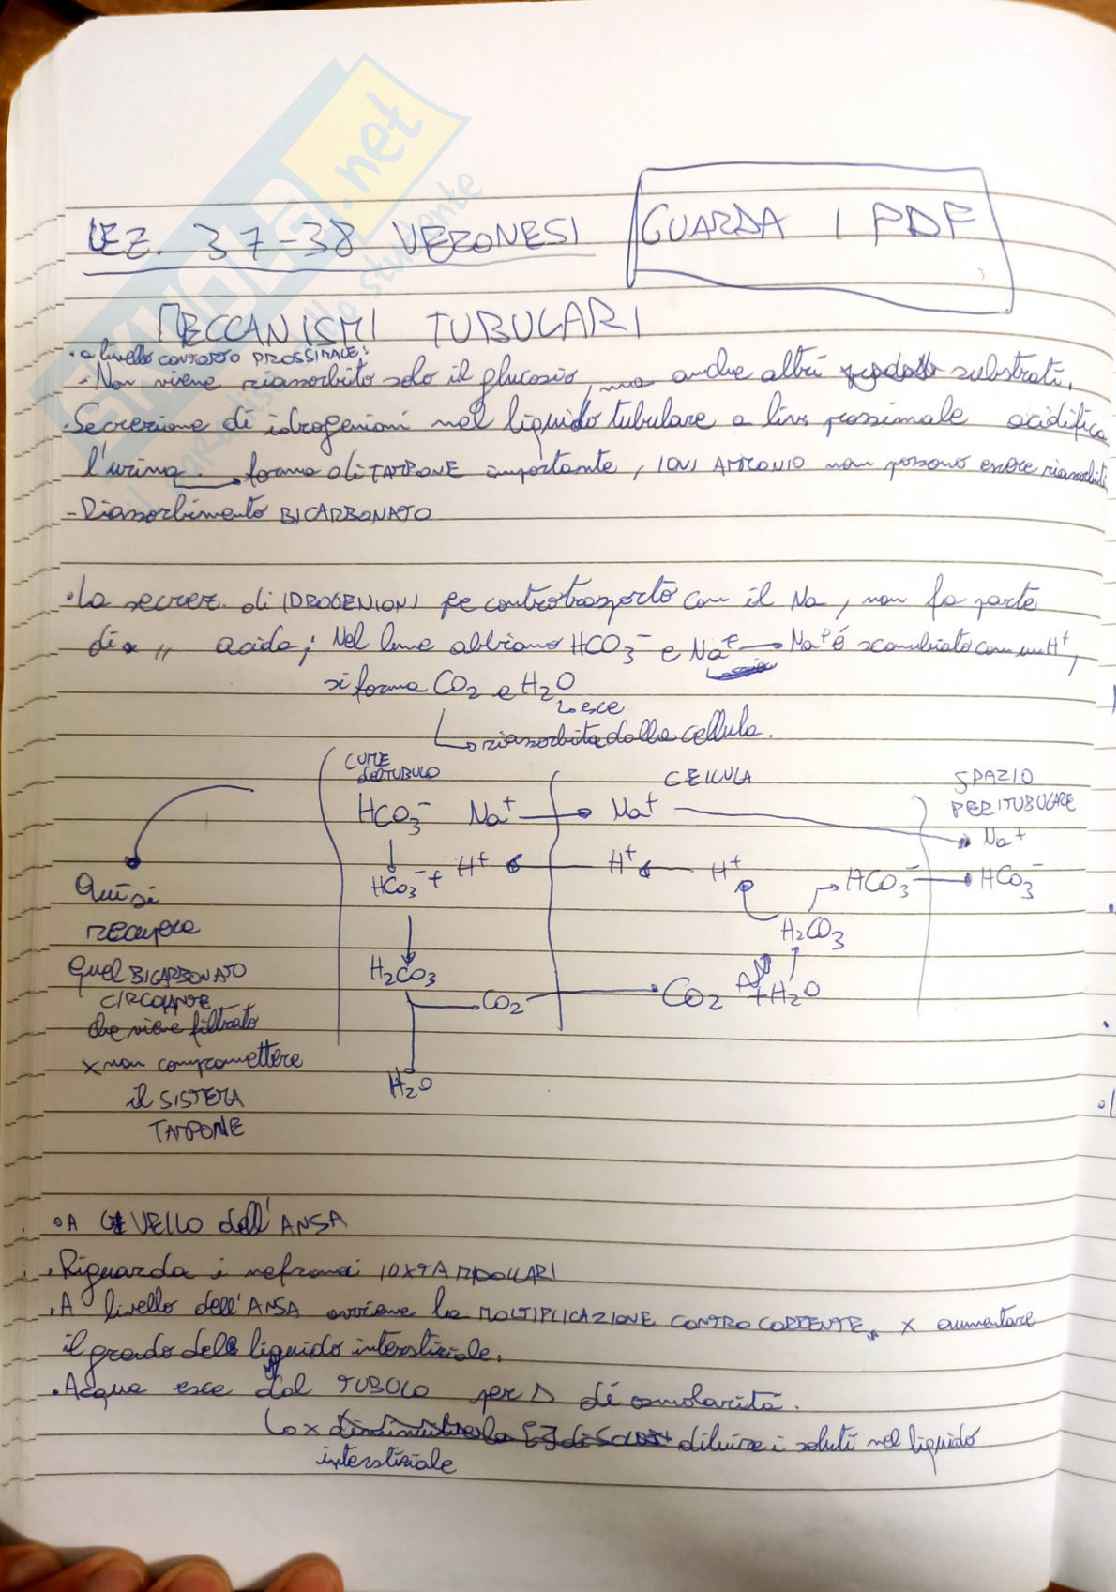 LEZ. 37-38 VERONESI
GUARDA I PDF
MECCANISMI TUBULARI
• a livello contorto PROSSIMALE:
- Non viene riassorbito solo il glucosio, ma anche altri substrati.
• Secrezione di idrogenioni nel liquido tubulare a liv. prossimale acidifica
l'urina. forma di TAMPONE importante, IONI AMMONIO non possono essere riassorbiti
- Riassorbimento BICARBONATO
• La secrez. di IDROGENIONI per controtrasporto con il Na, non fa parte
di x " acida; Nel lume abbiamo HCO3- e Na+ → Na+ è scambiato con un H+,
si forma CO2 e H2O
↳ esce
↳ riassorbita dalla cellula.
LUME
DEL TUBULO
CELLULA
SPAZIO
PERITUBULARE
HCO3- Na+ → Na+ → Na+
HCO3- + H+ ← H+ ← H+ HCO3- → HCO3-
H2CO3
H2CO3
CO2 → CO2 + H2O
H2O
Qui si
recupera
quel BICARBONATO
CIRCOLANTE
che viene filtrato
x non compromettere
il SISTEMA
TAMPONE
• A LIVELLO dell'ANSA
• Riguarda i nefroni IUXTAMIDOLLARI
• A livello dell'ANSA avviene la MOLTIPLICAZIONE CONTROCORRENTE, x aumentare
il grado del liquido interstiziale.
• Acqua esce dal TUBULO per Δ di osmolarità.
↳ x diluire i soluti nel liquido
interstiziale